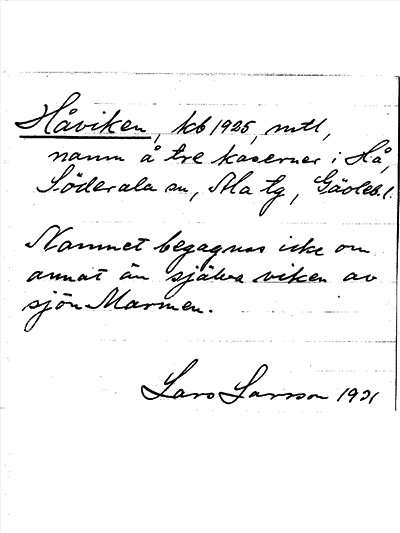 Håviken, kb 1925, mtl,
namn å tre kaserner i Hå,
Söderala sn, Ma tg, Gävleb. l.
Namnet begagnas icke om
annat än själva viken av
sjön Marmen.
Lars Larsson 1931